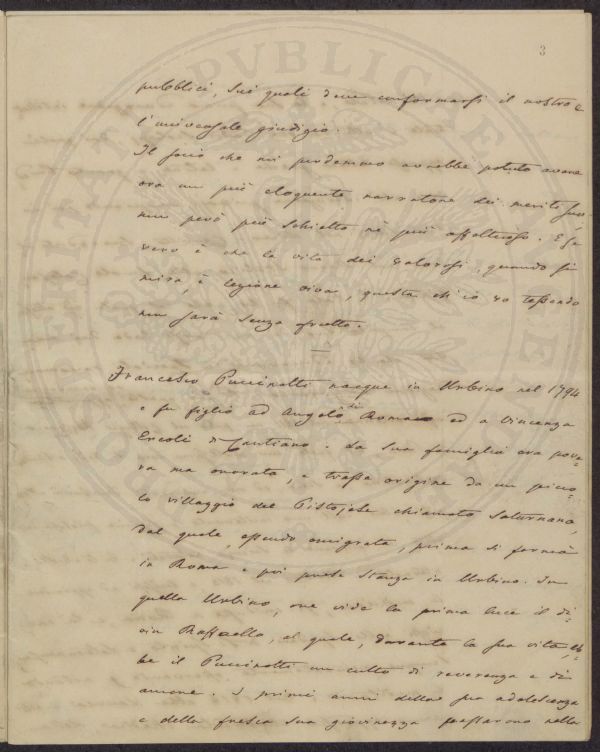 3
pubblici, sui quali deve conformarsi il nostro e
l'universale giudizio.
Il socio che noi perdemmo avrebbe potuto avere
ora un più eloquente narratore dei meriti suoi
non però più schietto nè più affettuoso. E se
vero è che la vita dei valorosi, quando si
mira, è lezione viva, questa ch'io vo tessendo
non sarà senza frutto.
Francesco Puccinotti nacque in Urbino nel 1794
e fu figlio ad Angelo di Roma ed a Vincenza
Ercoli di Cantiano. La sua famiglia era pove-
ra ma onorata, e trasse origine da un picco-
lo villaggio del Pistojese chiamato Saturnano,
dal quale, essendo emigrata, prima si fermò
in Roma e poi prese stanza in Urbino. In
quella Urbino, ove vide la prima luce il di-
vin Raffaello, al quale, durante la sua vita, eb-
be il Puccinotti un culto di reverenza e di
amore. I primi anni della sua adolescenza
e della fresca sua giovinezza passarono nella
PROSPERITATI PUBLICAE